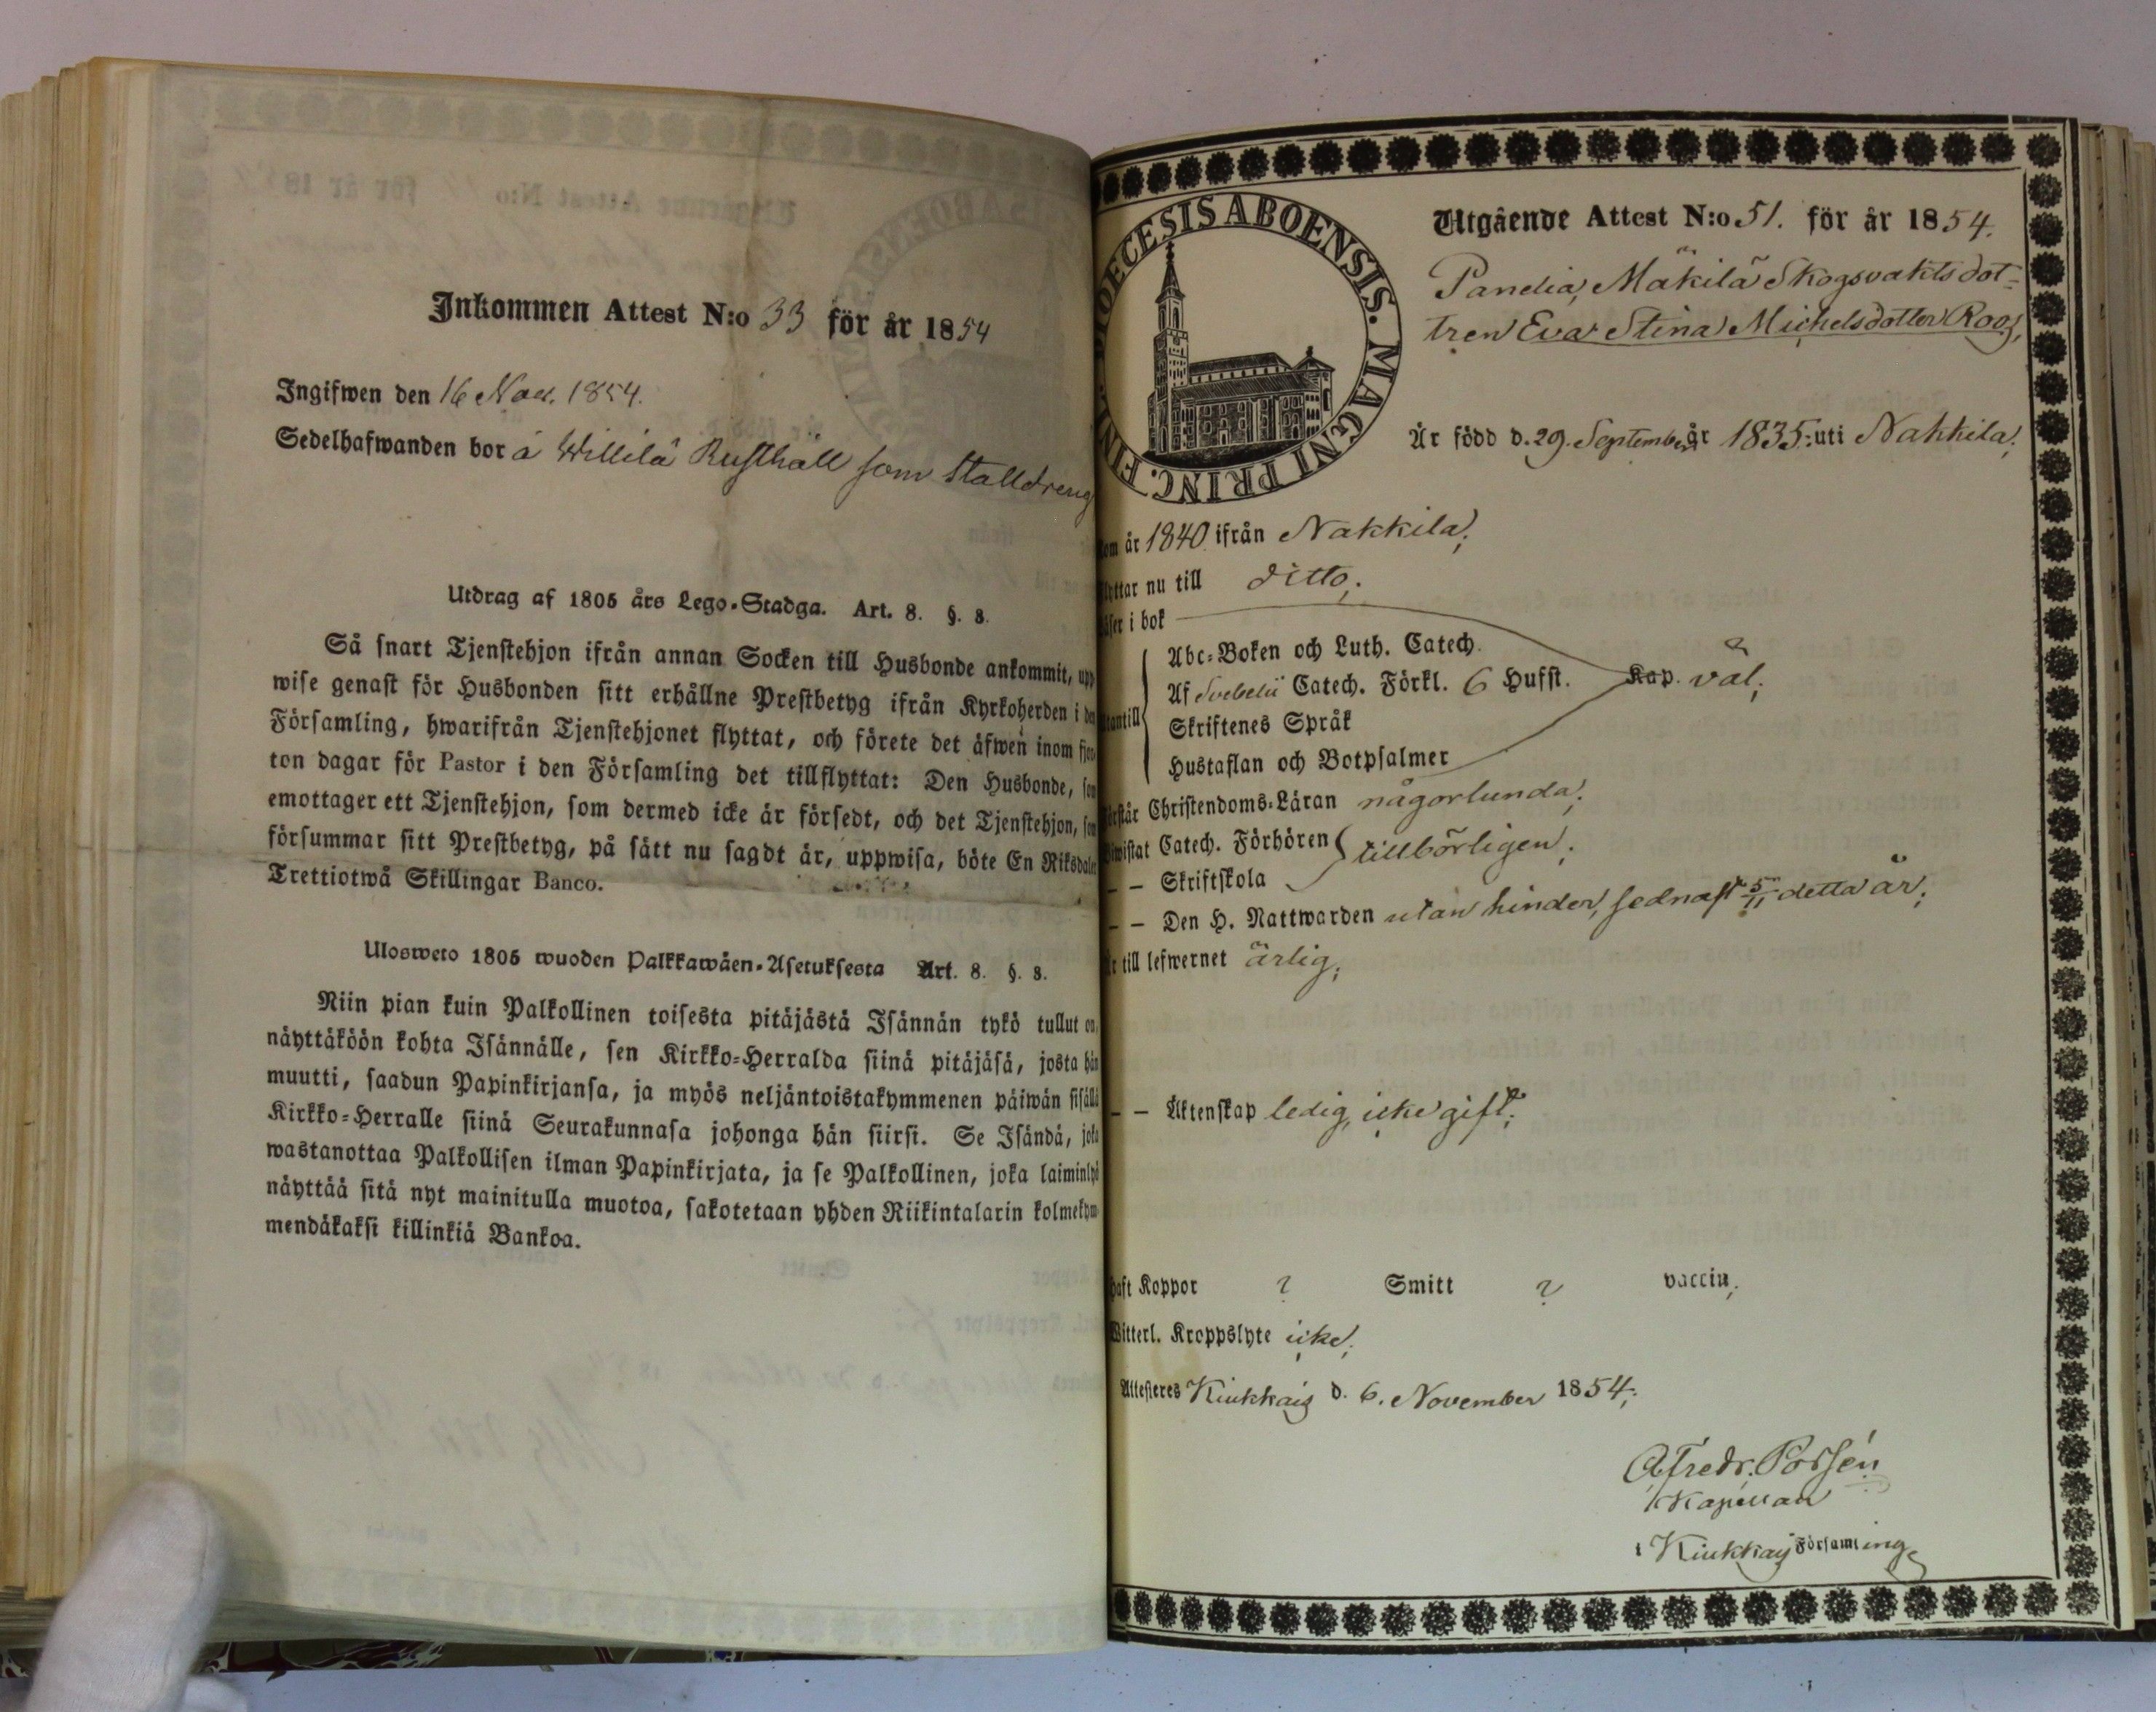 Inkommen Attest N:o 33 för år 1854
Ingifwen den 16 Nov. 1854.
Sedelhafwanden bor å Willilä Rusthåll som Stalldreng
Utdrag af 1805 års Lego-Stadga. Art. 8. §. 8.
Så snart Tjenstehjon ifrån annan Socken till Husbonde ankommit, upp
wise genast för Husbonden sitt erhållne Prestbetyg ifrån Kyrkoherden i den
Församling, hwarifrån Tjenstehjonet flyttat, och förete det äfwen inom fjor
ton dagar för Pastor i den Församling det tillflyttat: Den Husbonde, som
emottager ett Tjenstehjon, som dermed icke är försedt, och det Tjenstehjon, som
försummar sitt Prestbetyg, på sätt nu sagdt är, uppwisa, böte En Riksdaler
Trettiotwå Skillingar Banco.
Ulosweto 1805 wuoden Palkkawäen-Asetuksesta Art. 8. §. 8.
Niin pian kuin Palkollinen toisesta pitäjästä Isännän tykö tullut on,
näyttäköön kohta Isännälle, sen Kirkko-Herralda siinä pitäjäsä, josta hän
muutti, saadun Papinkirjansa, ja myös neljäntoistakymmenen päiwän sisällä
Kirkko-Herralle siinä Seurakunnasa johonga hän siirsi. Se Isändä, joka
wastanottaa Palkollisen ilman Papinkirjata, ja se Palkollinen, joka laiminlyö
näyttää sitä nyt mainitulla muotoa, sakotetaan yhden Riikintalarin kolmekym-
mendäkaksi killinkiä Bankoa.
DIOECESIS ABOENSIS. MAGNI PRINC. FINL.
Utgående Attest N:o 51. för år 1854.
Panelia, Mäkilä Skogsvaktsdot-
tren Eva Stina Michelsdotter Roos,
Är född d. 29. September år 1835. uti Nakkila;
kom år 1840 ifrån Nakkila;
flyttar nu till ditto;
läser i bok
Abc-Boken och Luth. Catech.
utantill Af Svebelii Catech. Förkl. 6 Hufst. Kap. väl;
Skriftenes Språk
Hustaflan och Botpsalmer
förstår Christendoms-Läran någorlunda;
Catech. Förhören tillbörligen;
– – Skriftskola
– – Den H. Nattwarden utan hinder, sednast 5/11 detta år;
Är till lefwernet ärlig;
– – Äktenskap ledig, icke gift;
haft Koppor ? Smitt ? vaccin;
Witterl. Kroppslyte icke;
Attesteres Kiukkais d. 6. November 1854;
A Fredr. Porssén
Kapellan
i Kiukkais Församling